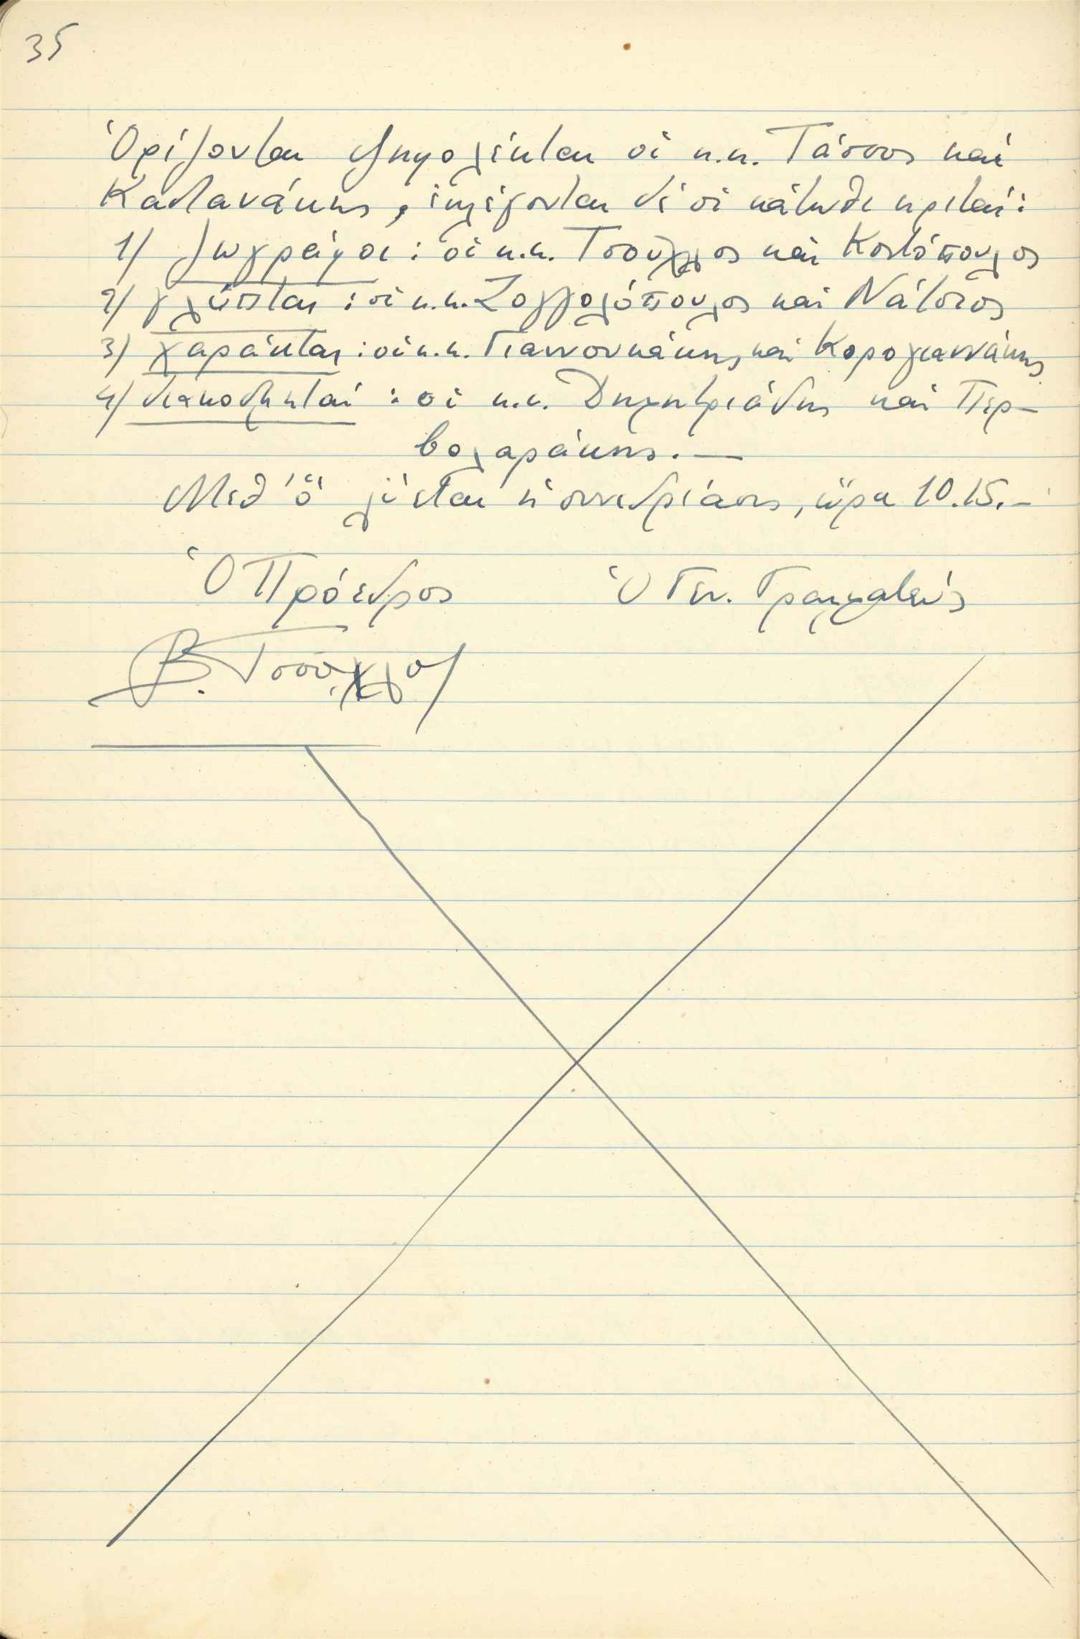 35
Ὁρίζονται ψηφολέκται οἱ κ.κ. Τάσσος καὶ
Καστανάκης, ἐκλέγονται δὲ οἱ κάτωθι κριταί:
1) ζωγράφοι: οἱ κ.κ. Τσοῦχλος καὶ Κοντόπουλος
2) γλύπται: οἱ κ.κ. Ζογγολόπουλος καὶ Νάτσιος
3) χαράκται: οἱ κ.κ. Γιαννουκάκης καὶ Κορογιαννάκης
4) διακοσμηταί: οἱ κ.κ. Δημητριάδης καὶ Περ-
βολαράκης.—
Μεθ' ὅ λύεται ἡ συνεδρίασις, ὥρα 10.15.—
Ὁ Πρόεδρος Ὁ Γεν. Γραμματεύς
Β. Τσοῦχλος